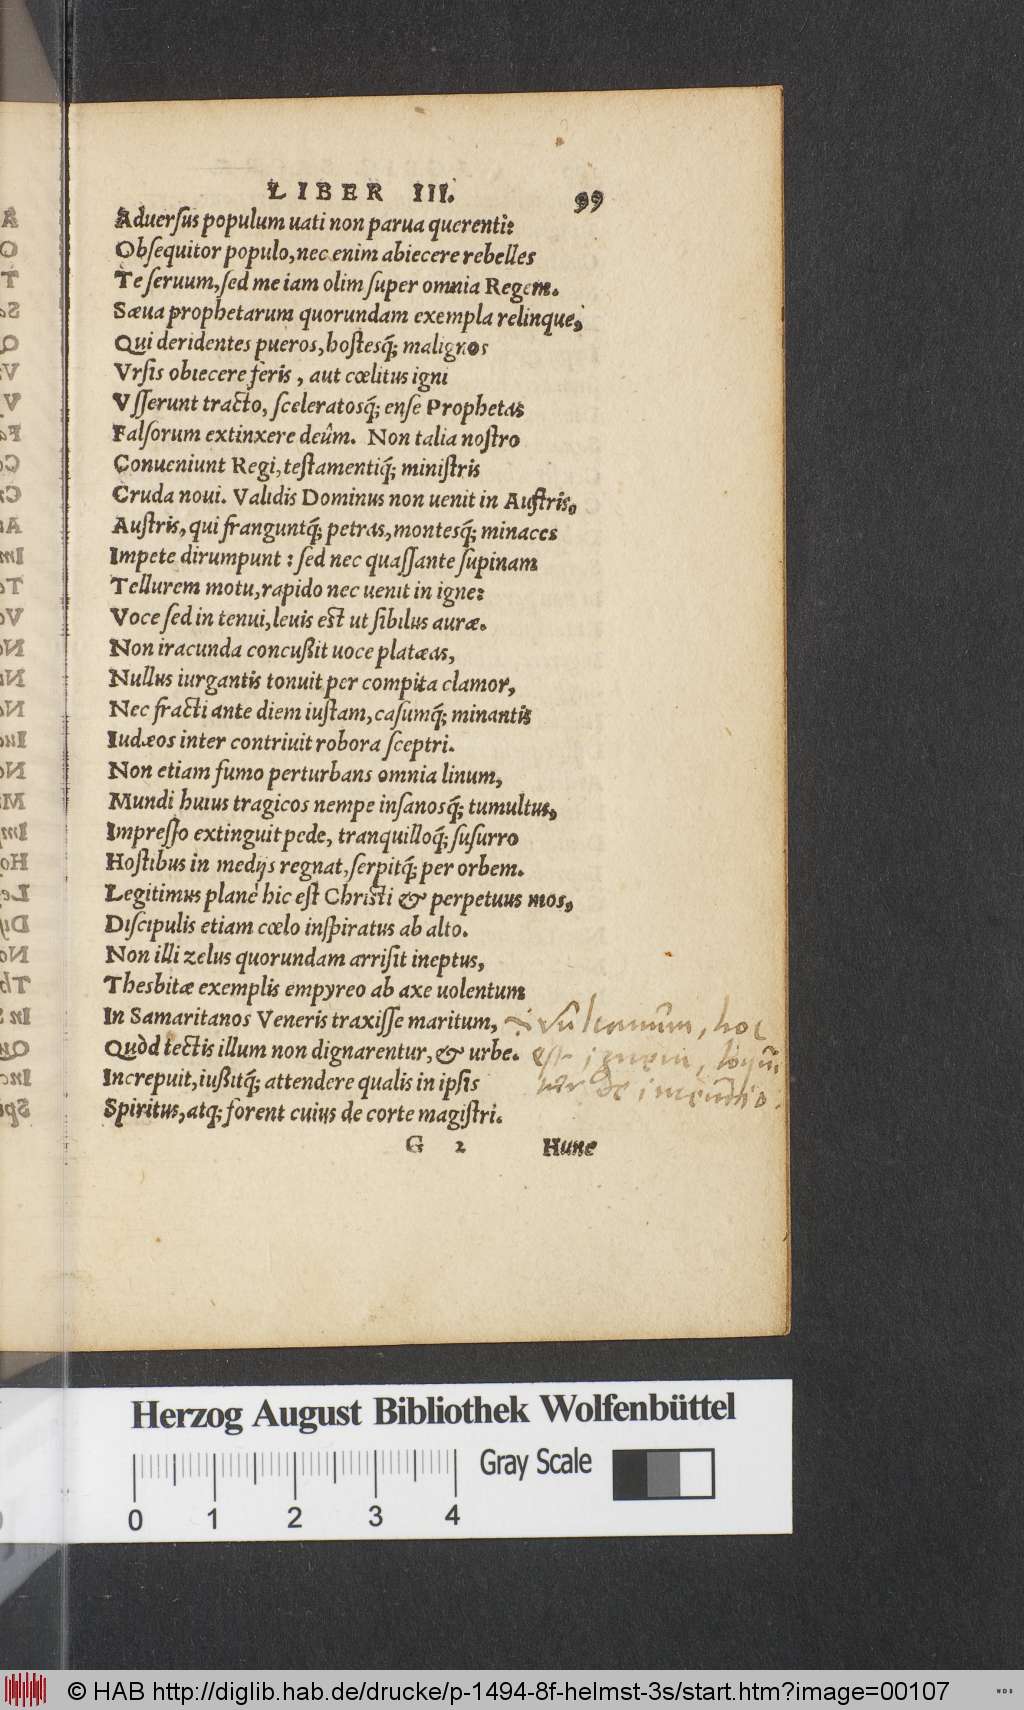 LIBER III. 99
Aduersus populum uati non parua querenti:
Obsequitor populo, nec enim abiecere rebelles
Te seruum, sed me iam olim super omnia Regem.
Sæua prophetarum quorundam exempla relinque,
Qui deridentes pueros, hostesq́; malignos
Vrsis obiecere feris, aut cœlitus igni
Vsserunt tracto, sceleratosq́; ense Prophetas
Falsorum extinxere deûm. Non talia nostro
Conueniunt Regi, testamentiq́; ministris
Cruda noui. Validis Dominus non uenit in Austris.
Austris, qui franguntq́; petras, montesq́; minaces
Impete dirumpunt: sed nec quassante supinam
Tellurem motu, rapido nec uenit in igne:
Voce sed in tenui, leuis est ut sibilus auræ.
Non iracunda concußit uoce platæas,
Nullus iurgantis tonuit per compita clamor,
Nec fracti ante diem iustam, casumq́; minantis
Iudæos inter contriuit robora sceptri.
Non etiam fumo perturbans omnia linum,
Mundi huius tragicos nempe insanosq́; tumultus,
Impresso extinguit pede, tranquilloq́; susurro
Hostibus in medijs regnat, serpitq́; per orbem.
Legitimus planè hic est Christi & perpetuus mos,
Discipulis etiam cœlo inspiratus ab alto.
Non illi zelus quorundam arrisit ineptus,
Thesbitæ exemplis empyreo ab axe uolentum
In Samaritanos Veneris traxisse maritum, vulcanum, hoc
Quòd tectis illum non dignarentur, & urbe. est ignem, loqui
Increpuit, iußitq́; attendere qualis in ipsis tur de incendio.
Spiritus, atq; forent cuius de corte magistri.
G 2 Hunc
Herzog August Bibliothek Wolfenbüttel
Gray Scale
0 1 2 3 4
© HAB http://diglib.hab.de/drucke/p-1494-8f-helmst-3s/start.htm?image=00107